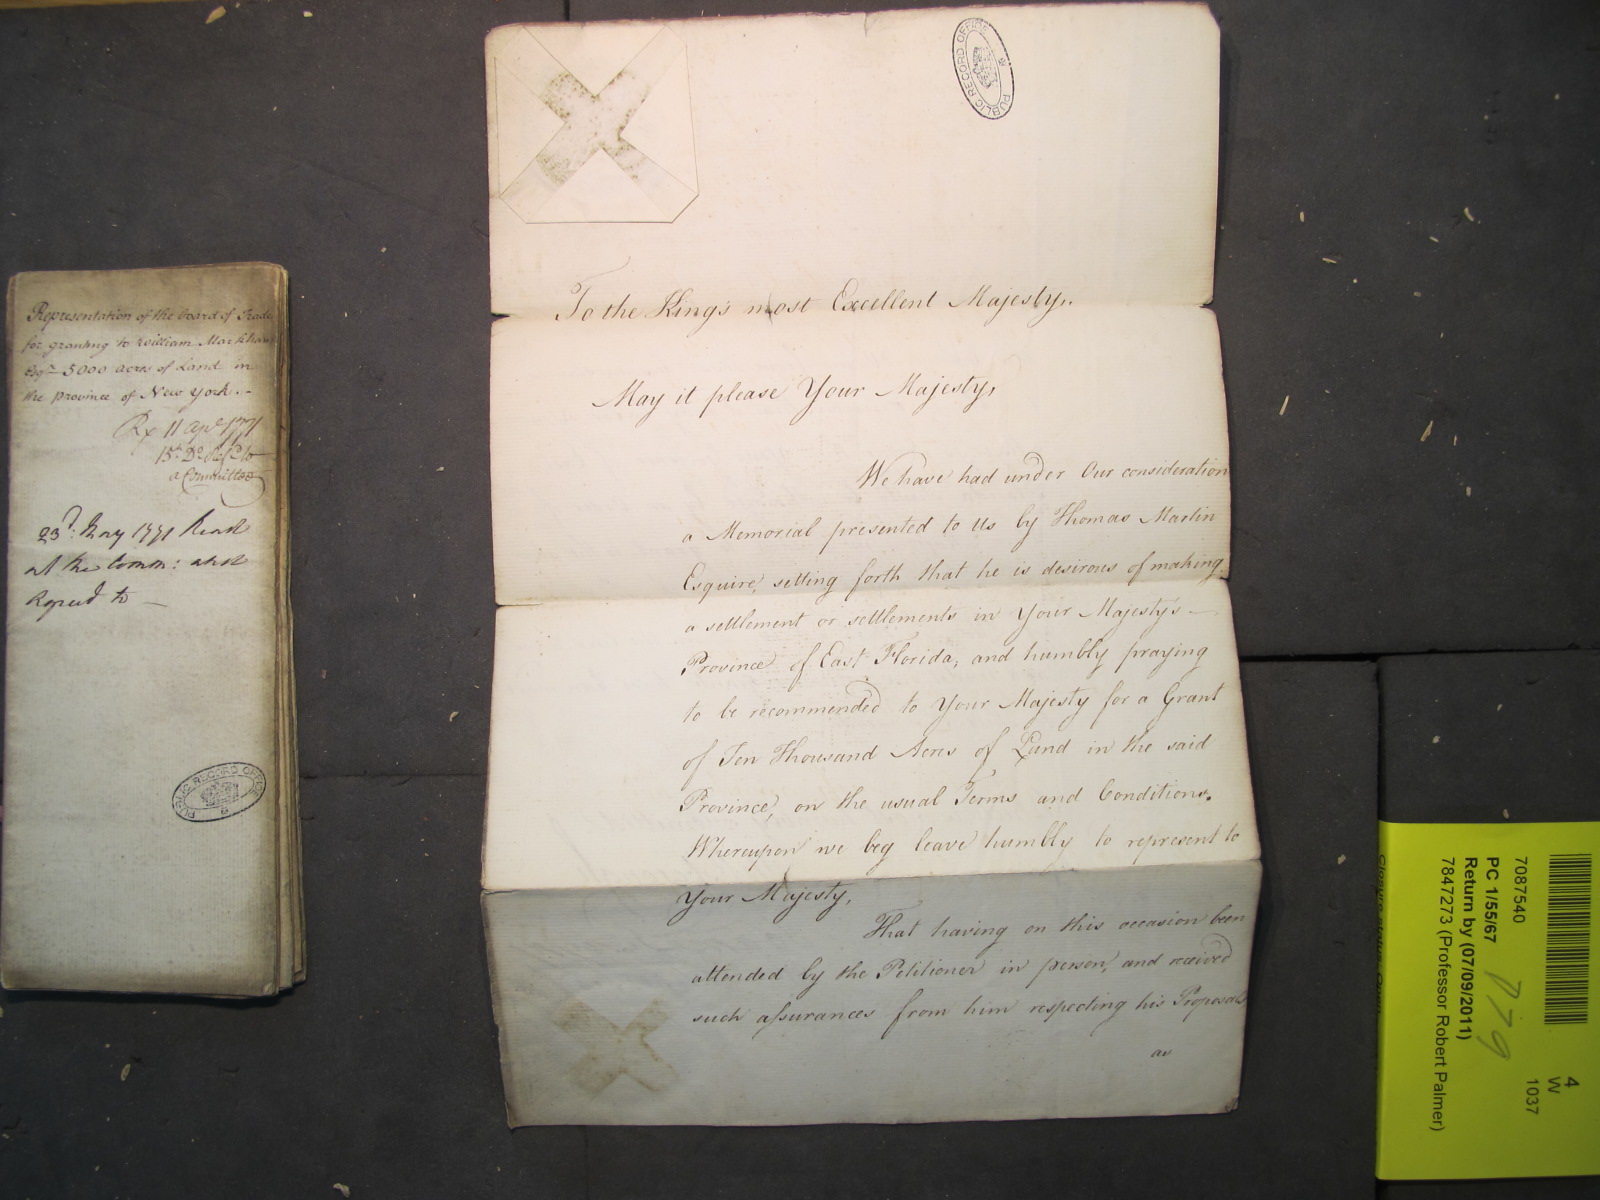 Representation of the board of Trade
for granting to William Markham
Esqr. 5000 acres of Land in
the province of New York.-
Rx 11 Apl. 1771
15th. Do. Refd. to
a Committee
23d: May 1771 Read
at the Comm: and
Agreed to —
PUBLIC RECORD OFFICE
PUBLIC RECORD OFFICE
To the King's most Excellent Majesty,
May it please Your Majesty,
We have had under Our consideration
a Memorial presented to Us by Thomas Martin
Esquire, setting forth that he is desirous of making
a settlement or settlements in Your Majesty's —
Province of East Florida, and humbly praying
to be recommended to Your Majesty for a Grant
of Ten Thousand Acres of Land in the said
Province, on the usual Terms and Conditions.
Whereupon we beg leave humbly to represent to
Your Majesty,
That having on this occasion been
attended by the Petitioner in person, and received
such assurances from him respecting his Proposals
as
4
W
1037
7087540
PC 1/55/67
Return by (07/09/2011)
7847273 (Professor Robert Palmer)
Closure status: Open